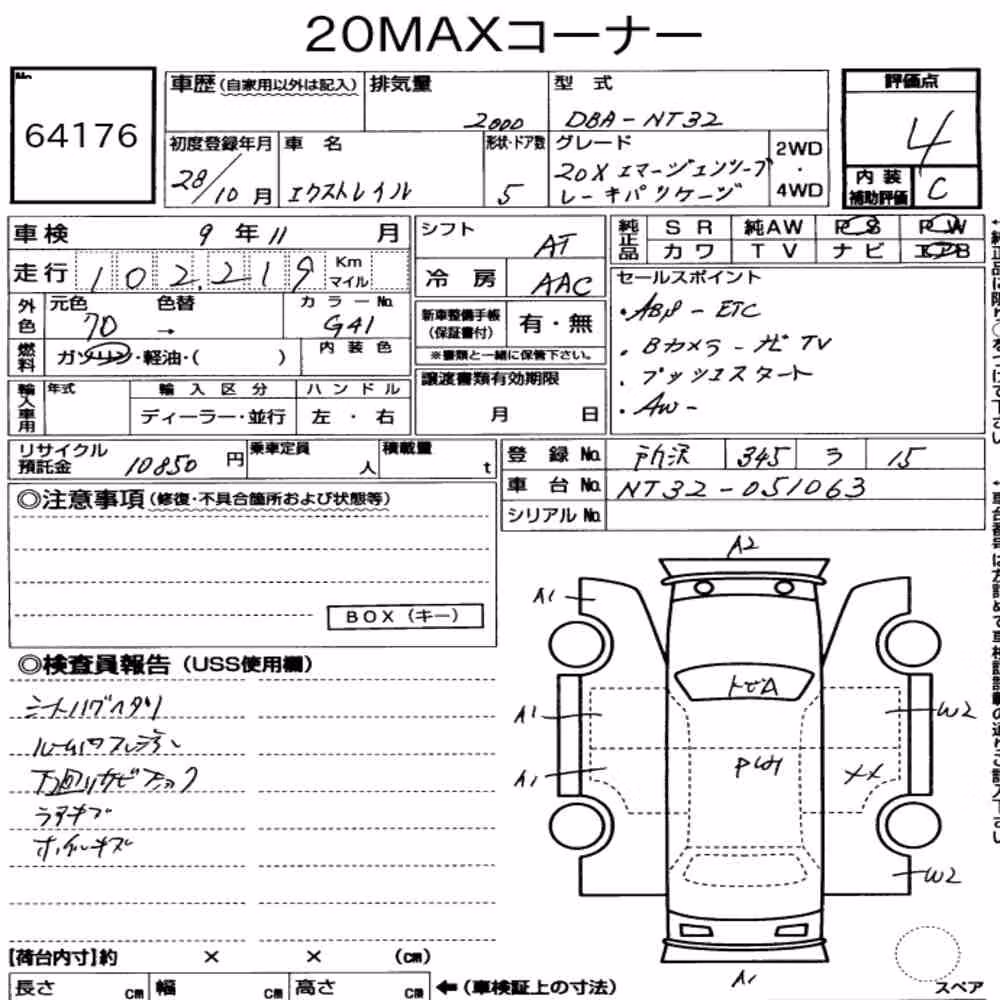 20MAXコーナー
No.
64176
車歴(自家用以外は記入)
排気量
2000
型式
DBA-NT32
評価点
4
初度登録年月
28/10月
車名
エクストレイル
形状・ドア数
5
グレード
20X エマージェンシーブ
レーキパッケージ
2WD
・
4WD
内装
補助評価
C
車検
9年11月
走行
102,219
Km
マイル
シフト
AT
冷房
AAC
純正品
SR 純AW PS PW
カワ TV ナビ エアB
外色
元色
70
色替
→
カラーNo.
G41
燃料
ガソリン・軽油・( )
内装色
新車整備手帳
(保証書付)
有・無
※書類と一緒に保管下さい。
セールスポイント
・ABS - ETC
・Bカメラ - ナビTV
・プッシュスタート
・AW -
輸入車用
年式
輸入区分
ハンドル
ディーラー・並行
左・右
譲渡書類有効期限
月 日
リサイクル
預託金
10850円
乗車定員
人
積載量
t
登録No.
所沢 345 う 15
車台No.
NT32-051063
シリアルNo.
◎注意事項(修復・不具合箇所および状態等)
BOX(キー)
◎検査員報告(USS使用欄)
シートハゲヘタリ
下回りサビ
キズ
ホイルキズ
A2
A1
A1
A1
トビA
W2
XX
W2
A1
【荷台内寸】約 × × (cm)
長さ cm 幅 cm 高さ cm
←(車検証上の寸法)
スペア